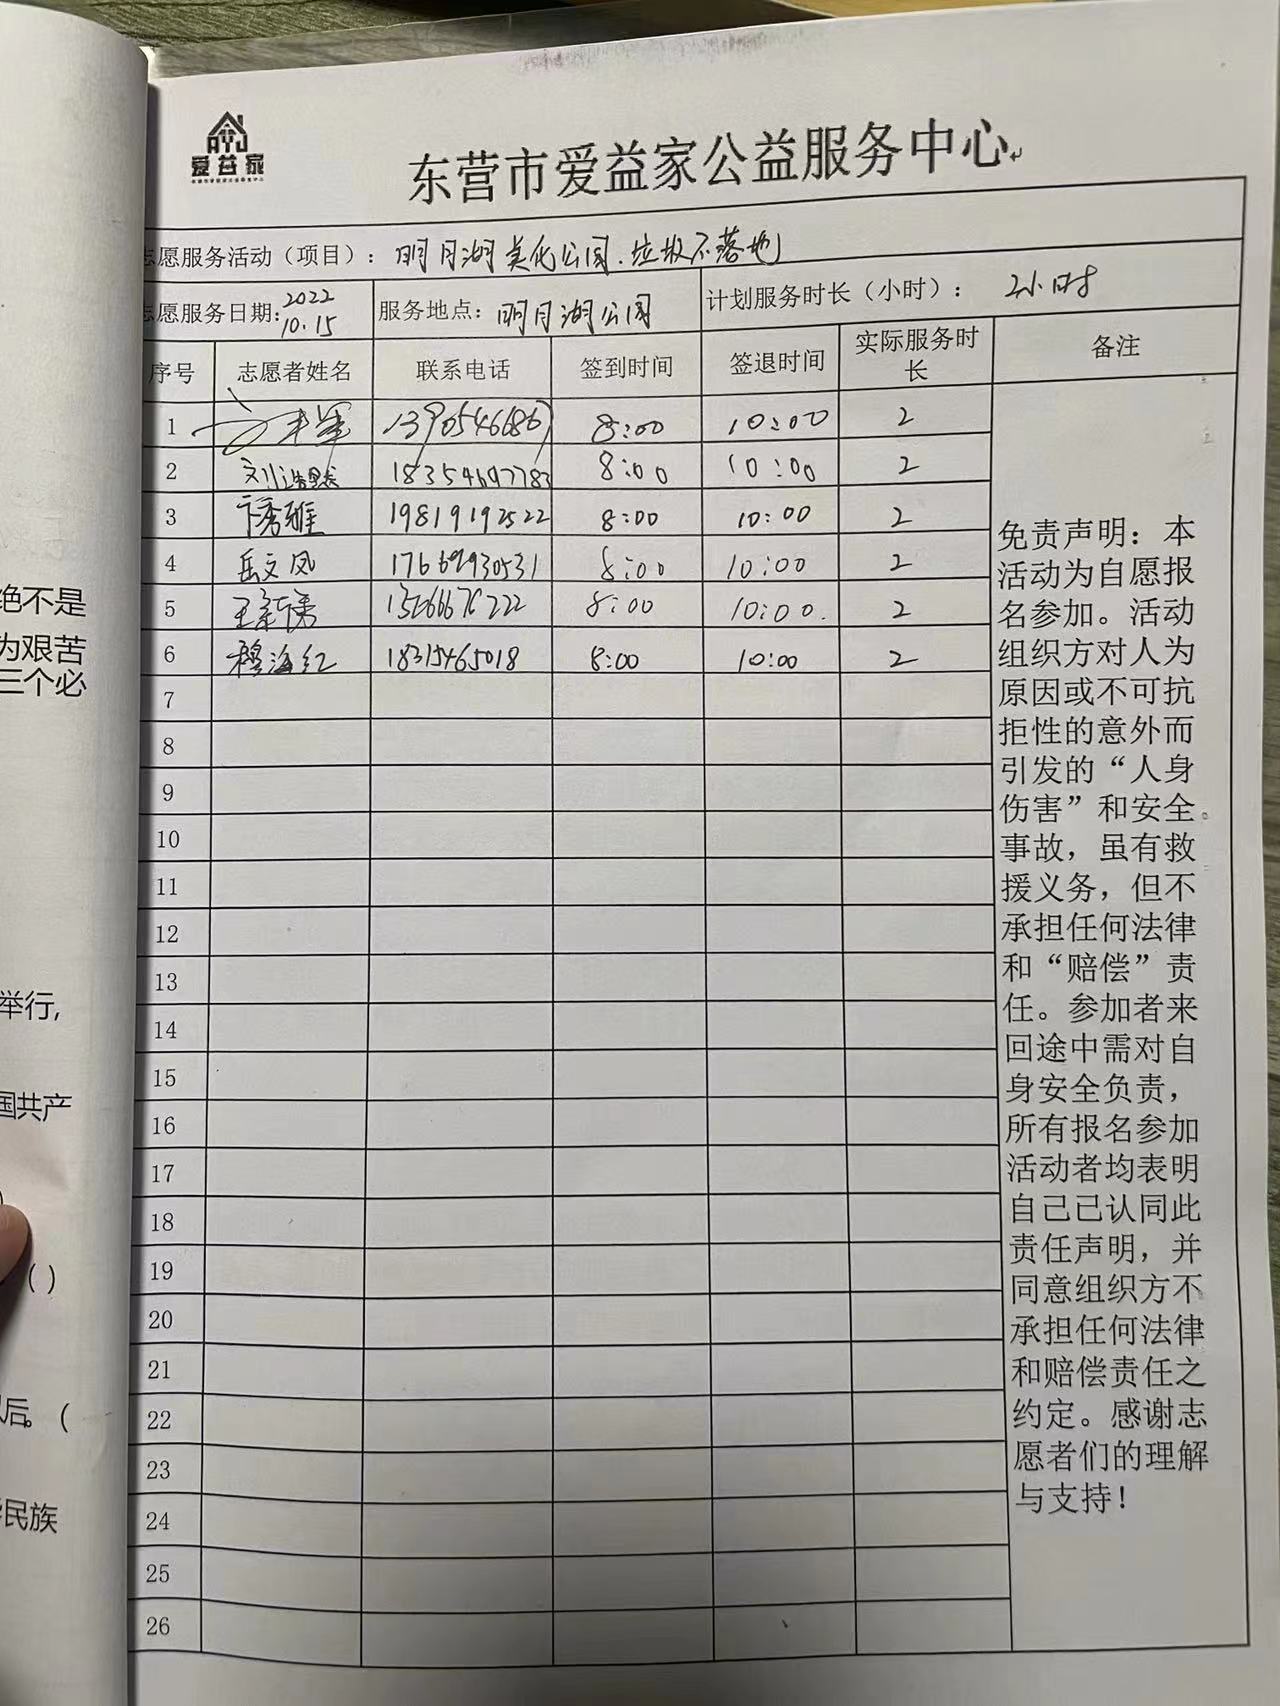 爱益家
东营市爱益家公益服务中心
志愿服务活动（项目）：明月湖美化公园.垃圾不落地
志愿服务日期：2022 10.15 服务地点：明月湖公园 计划服务时长（小时）：2小时
序号 志愿者姓名 联系电话 签到时间 签退时间 实际服务时长 备注
1 8:00 10:00 2
2 刘浩然 18354697783 8:00 10:00 2
3 卞秀雅 19819192522 8:00 10:00 2
4 岳文凤 17669930531 8:00 10:00 2
5 8:00 10:00. 2
6 穆海红 18315465018 8:00 10:00 2
7
8
9
10
11
12
13
14
15
16
17
18
19
20
21
22
23
24
25
26
免责声明：本
活动为自愿报
名参加。活动
组织方对人为
原因或不可抗
拒性的意外而
引发的“人身
伤害”和安全
事故，虽有救
援义务，但不
承担任何法律
和“赔偿”责
任。参加者来
回途中需对自
身安全负责，
所有报名参加
活动者均表明
自己已认同此
责任声明，并
同意组织方不
承担任何法律
和赔偿责任之
约定。感谢志
愿者们的理解
与支持！
绝不是
为艰苦
三个必
举行,
国共产
( )
后。(
民族